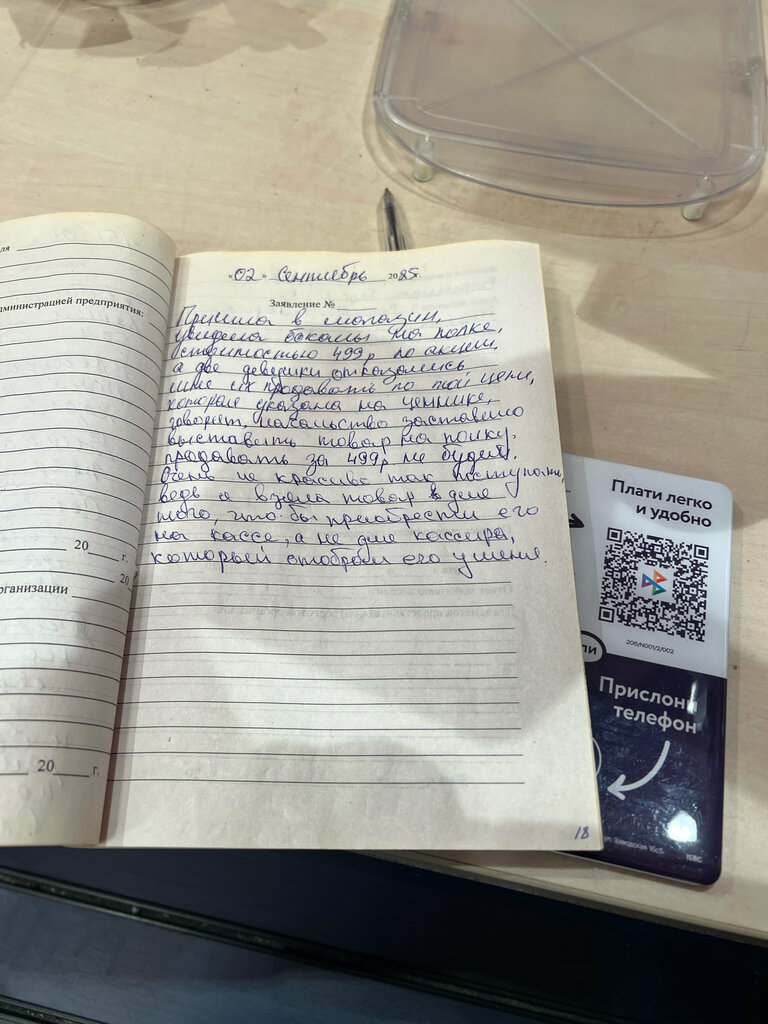 ля
администрацией предприятия:
20 г.
20
организации
20 г.
«02» Сентябрь 2025г.
Заявление №
Пришла в магазин,
увидела бокалы на полке,
стоимостью 499р по акции,
а две девушки отказались
мне их продавать по той цене,
которая указана на ценнике,
говорят, начальство заставило
выставить товар на полку.
продавать за 499р не будем.
Очень не красиво так поступать,
ведь я взяла товар для
того, что бы приобрести его
на кассе, а не для кассира,
который отобрал его у меня.
18
Плати легко
и удобно
206/N001/2/002
ли
Прислони
телефон
ул. Заводская 16с5
ISBC